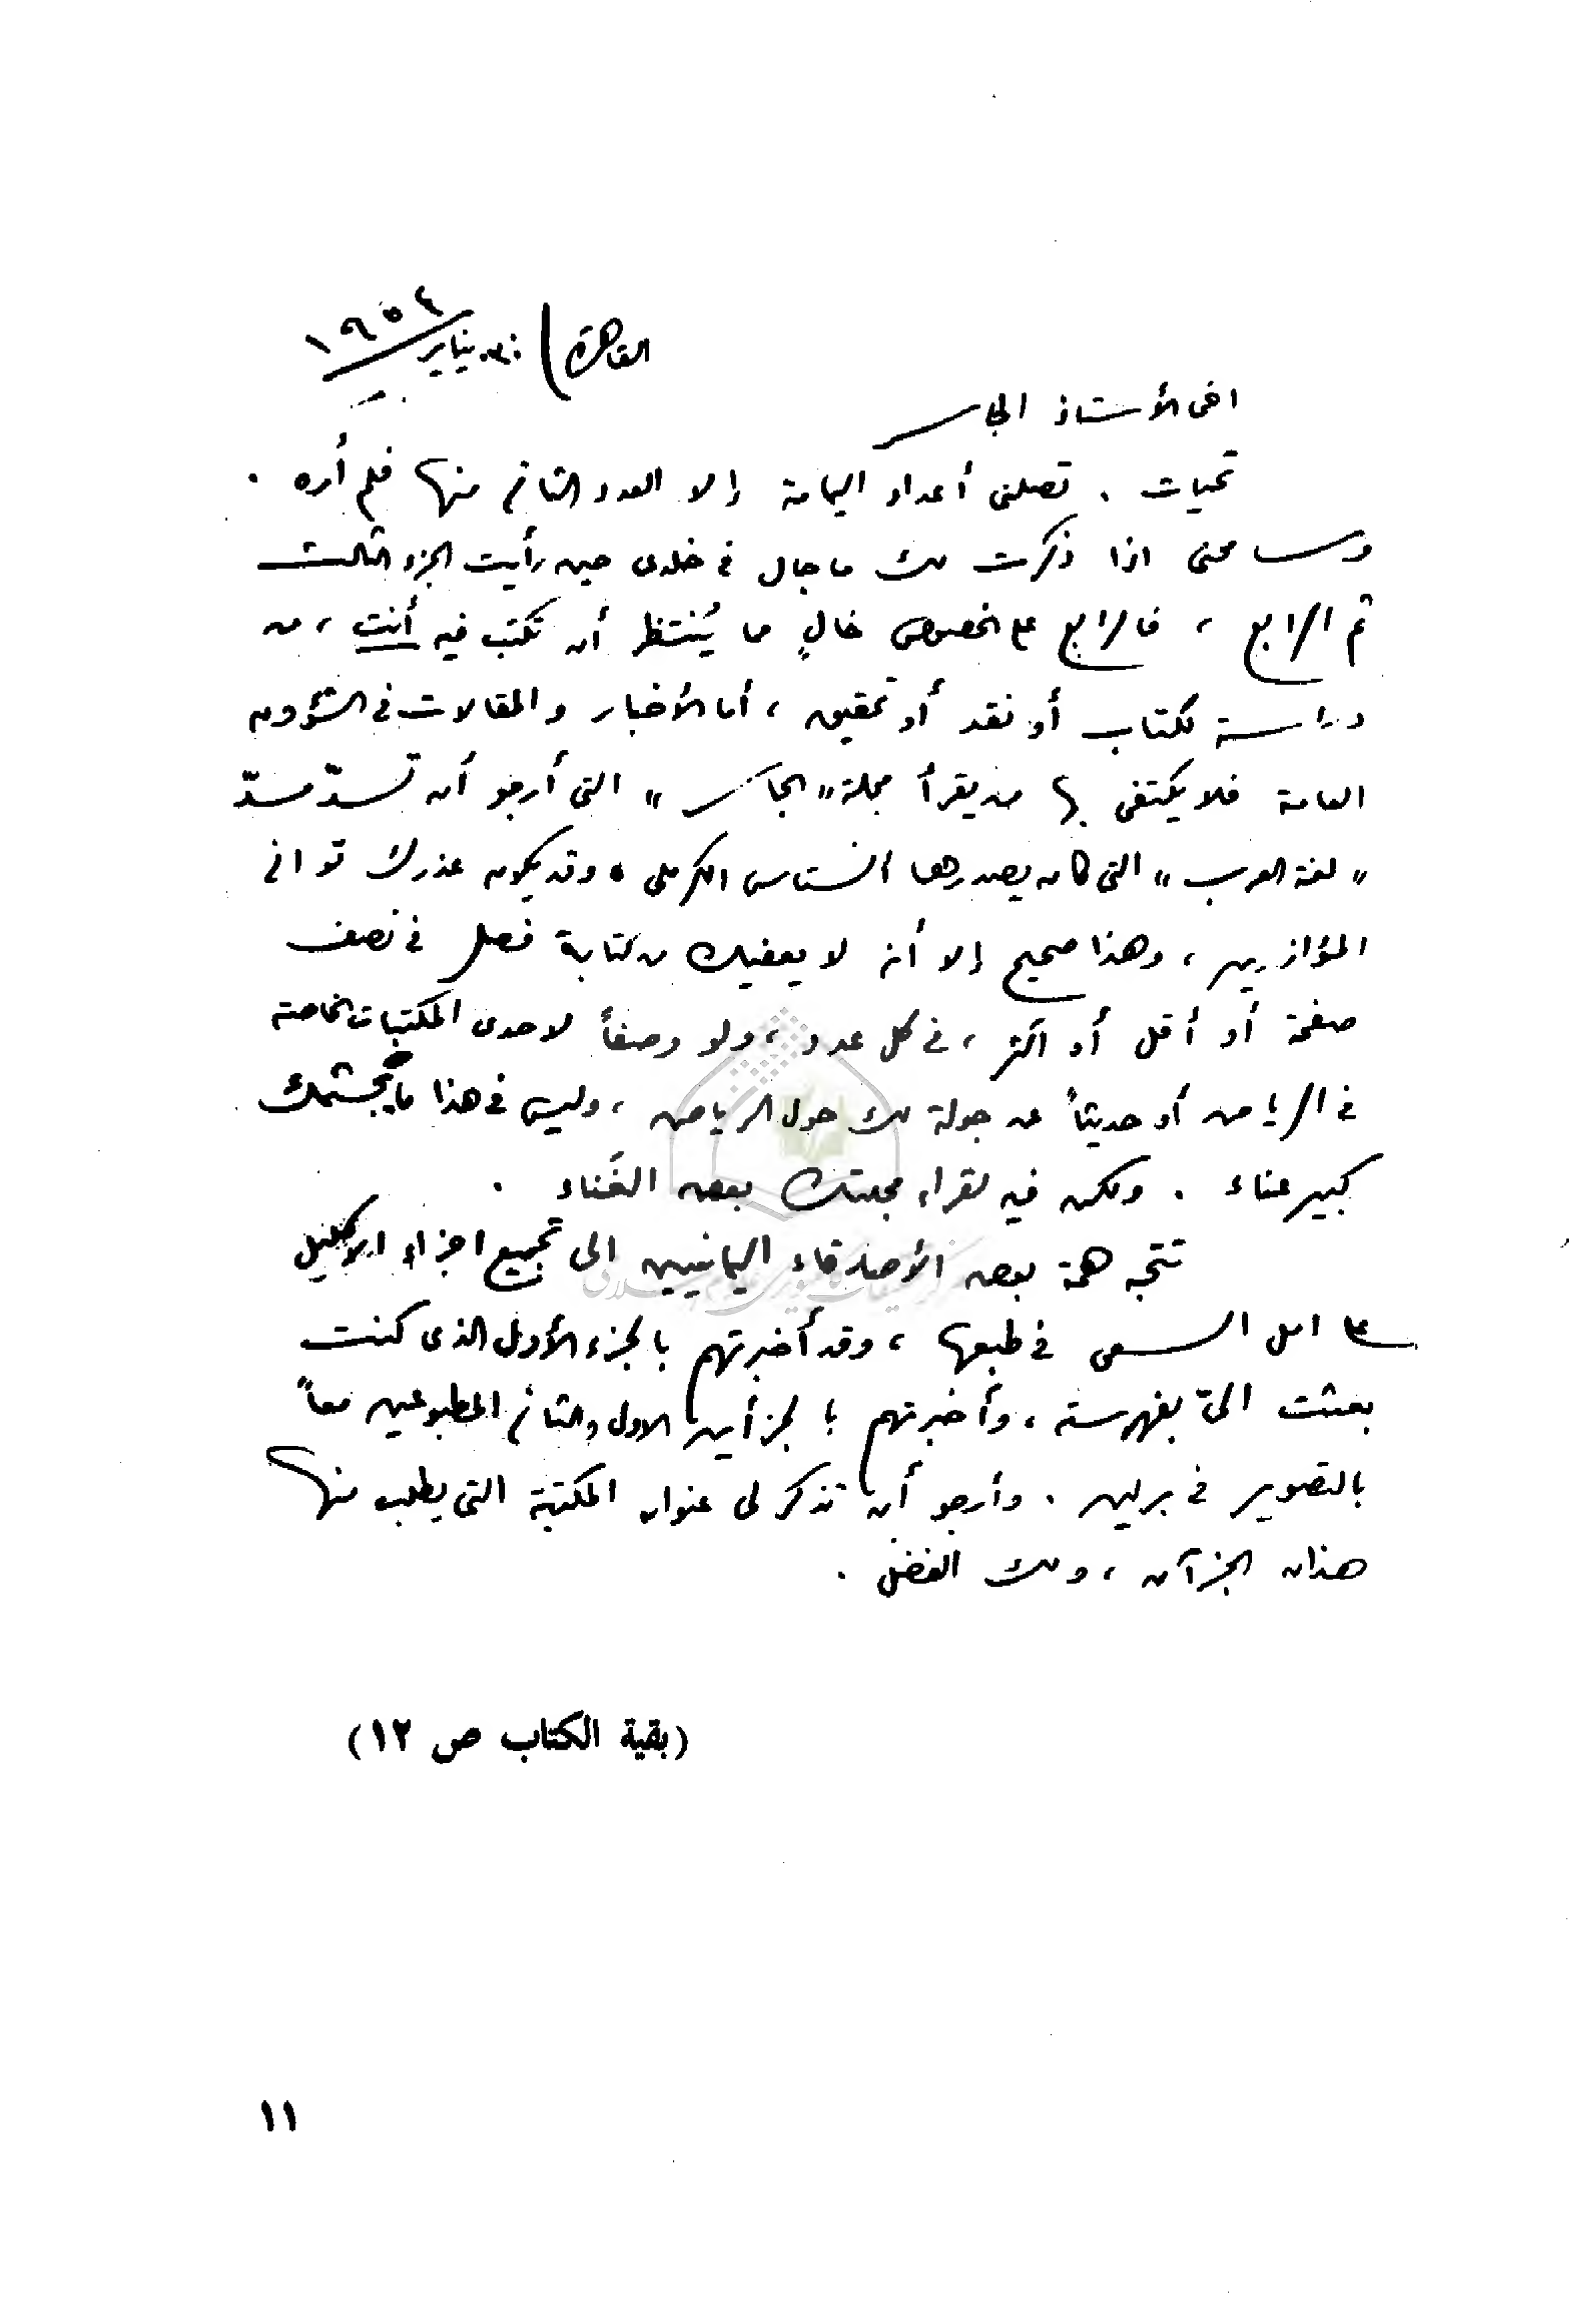 القاهرة ٣٠ يناير ١٩٥٤
اخى الأستاذ الجاسر
تحيات . تصلنى أعداد اليمامة إلا العدد الثانى منها فلم أره .
وسامحنى اذا ذكرت لك ما جال فى خلدى حين رأيت الجزء الثالث
ثم الرابع ، فالرابع على الخصوص خالٍ مما يُنتظر أن تكتب فيه أنت ، من
دراسة لكتاب أو نقد أو تحقيق ، أما الأخبار والمقالات فى الشؤون
العامة فلا يكتفى بها من يقرأ مجلة " الجاسر " التى أرجو أن تسدّ مسدّ
" لغة العرب " التى كان يصدرها انستاس الكرملى . وقد يكون عذرك توانى
المؤازرين ، وهذا صحيح إلا أنه لا يعفيك من كتابة فصل فى نصف
صفحة أو أقل أو أكثر ، فى كل عدد ، ولو وصفاً لاحدى المكتبات الخاصة
فى الرياض أو حديثاً عن جولة لك حول الرياض ، وليس فى هذا ما يجشمك
كبير عناء . ولكن فيه لقراء مجلتك بعض الغَناء .
تتجه همة بعض الأصدقاء اليمانيين الى تجميع اجزاء الاكليل
على امل السعى فى طبعها ، وقد أخبرتهم بالجزء الأول الذى كنت
بعثت الىّ بفهرسته ، وأخبرتهم بالجزأين الاول والثانى المطبوعين معاً
بالتصوير فى برلين . وأرجو أن تذكر لى عنوان المكتبة التى يطلب منها
هذان الجزآن ، ولك الفضل .
(بقية الكتاب ص ١٢)
١١